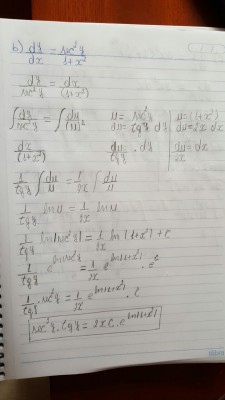 b) dy/dx = sec²y/1+x²
dy/sec²y = dx/(1+x²)
∫dy/sec²y = ∫dx/(u)² u = sec²y u = (1+x²)
du = tg²y dy du = 2x dx
dx/(1+x²) du/tgy . dy du/2x = dx
1/tgy ∫du/u = 1/2x ∫du/u
1/tgy ln u = 1/2x ln u
1/tgy ln|sec²y| = 1/2x ln|1+x²| + c
1/tgy e^ln|sec²y| = 1/2x e^ln|1+x²| . e^c
1/tgy . sec²y = 1/2x e^ln|1+x²| . c
sec²y . tgy = 2x c . e^ln|1+x²|